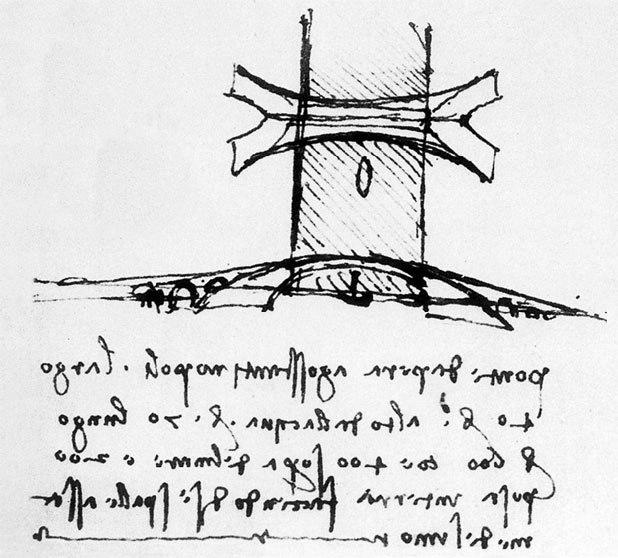 ponte da pera a gosstantinopoli . largo
40 br alto dallacqua br 70 lungo
br 600 coe 400 sopra del mare e 200
posa in terra faciendo di se spalle a sse
medesimo